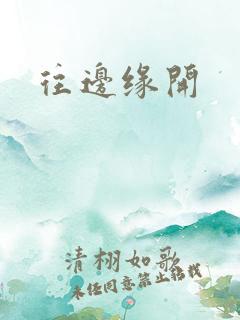 往邊缘開
清栩如歌
未经同意禁止转载